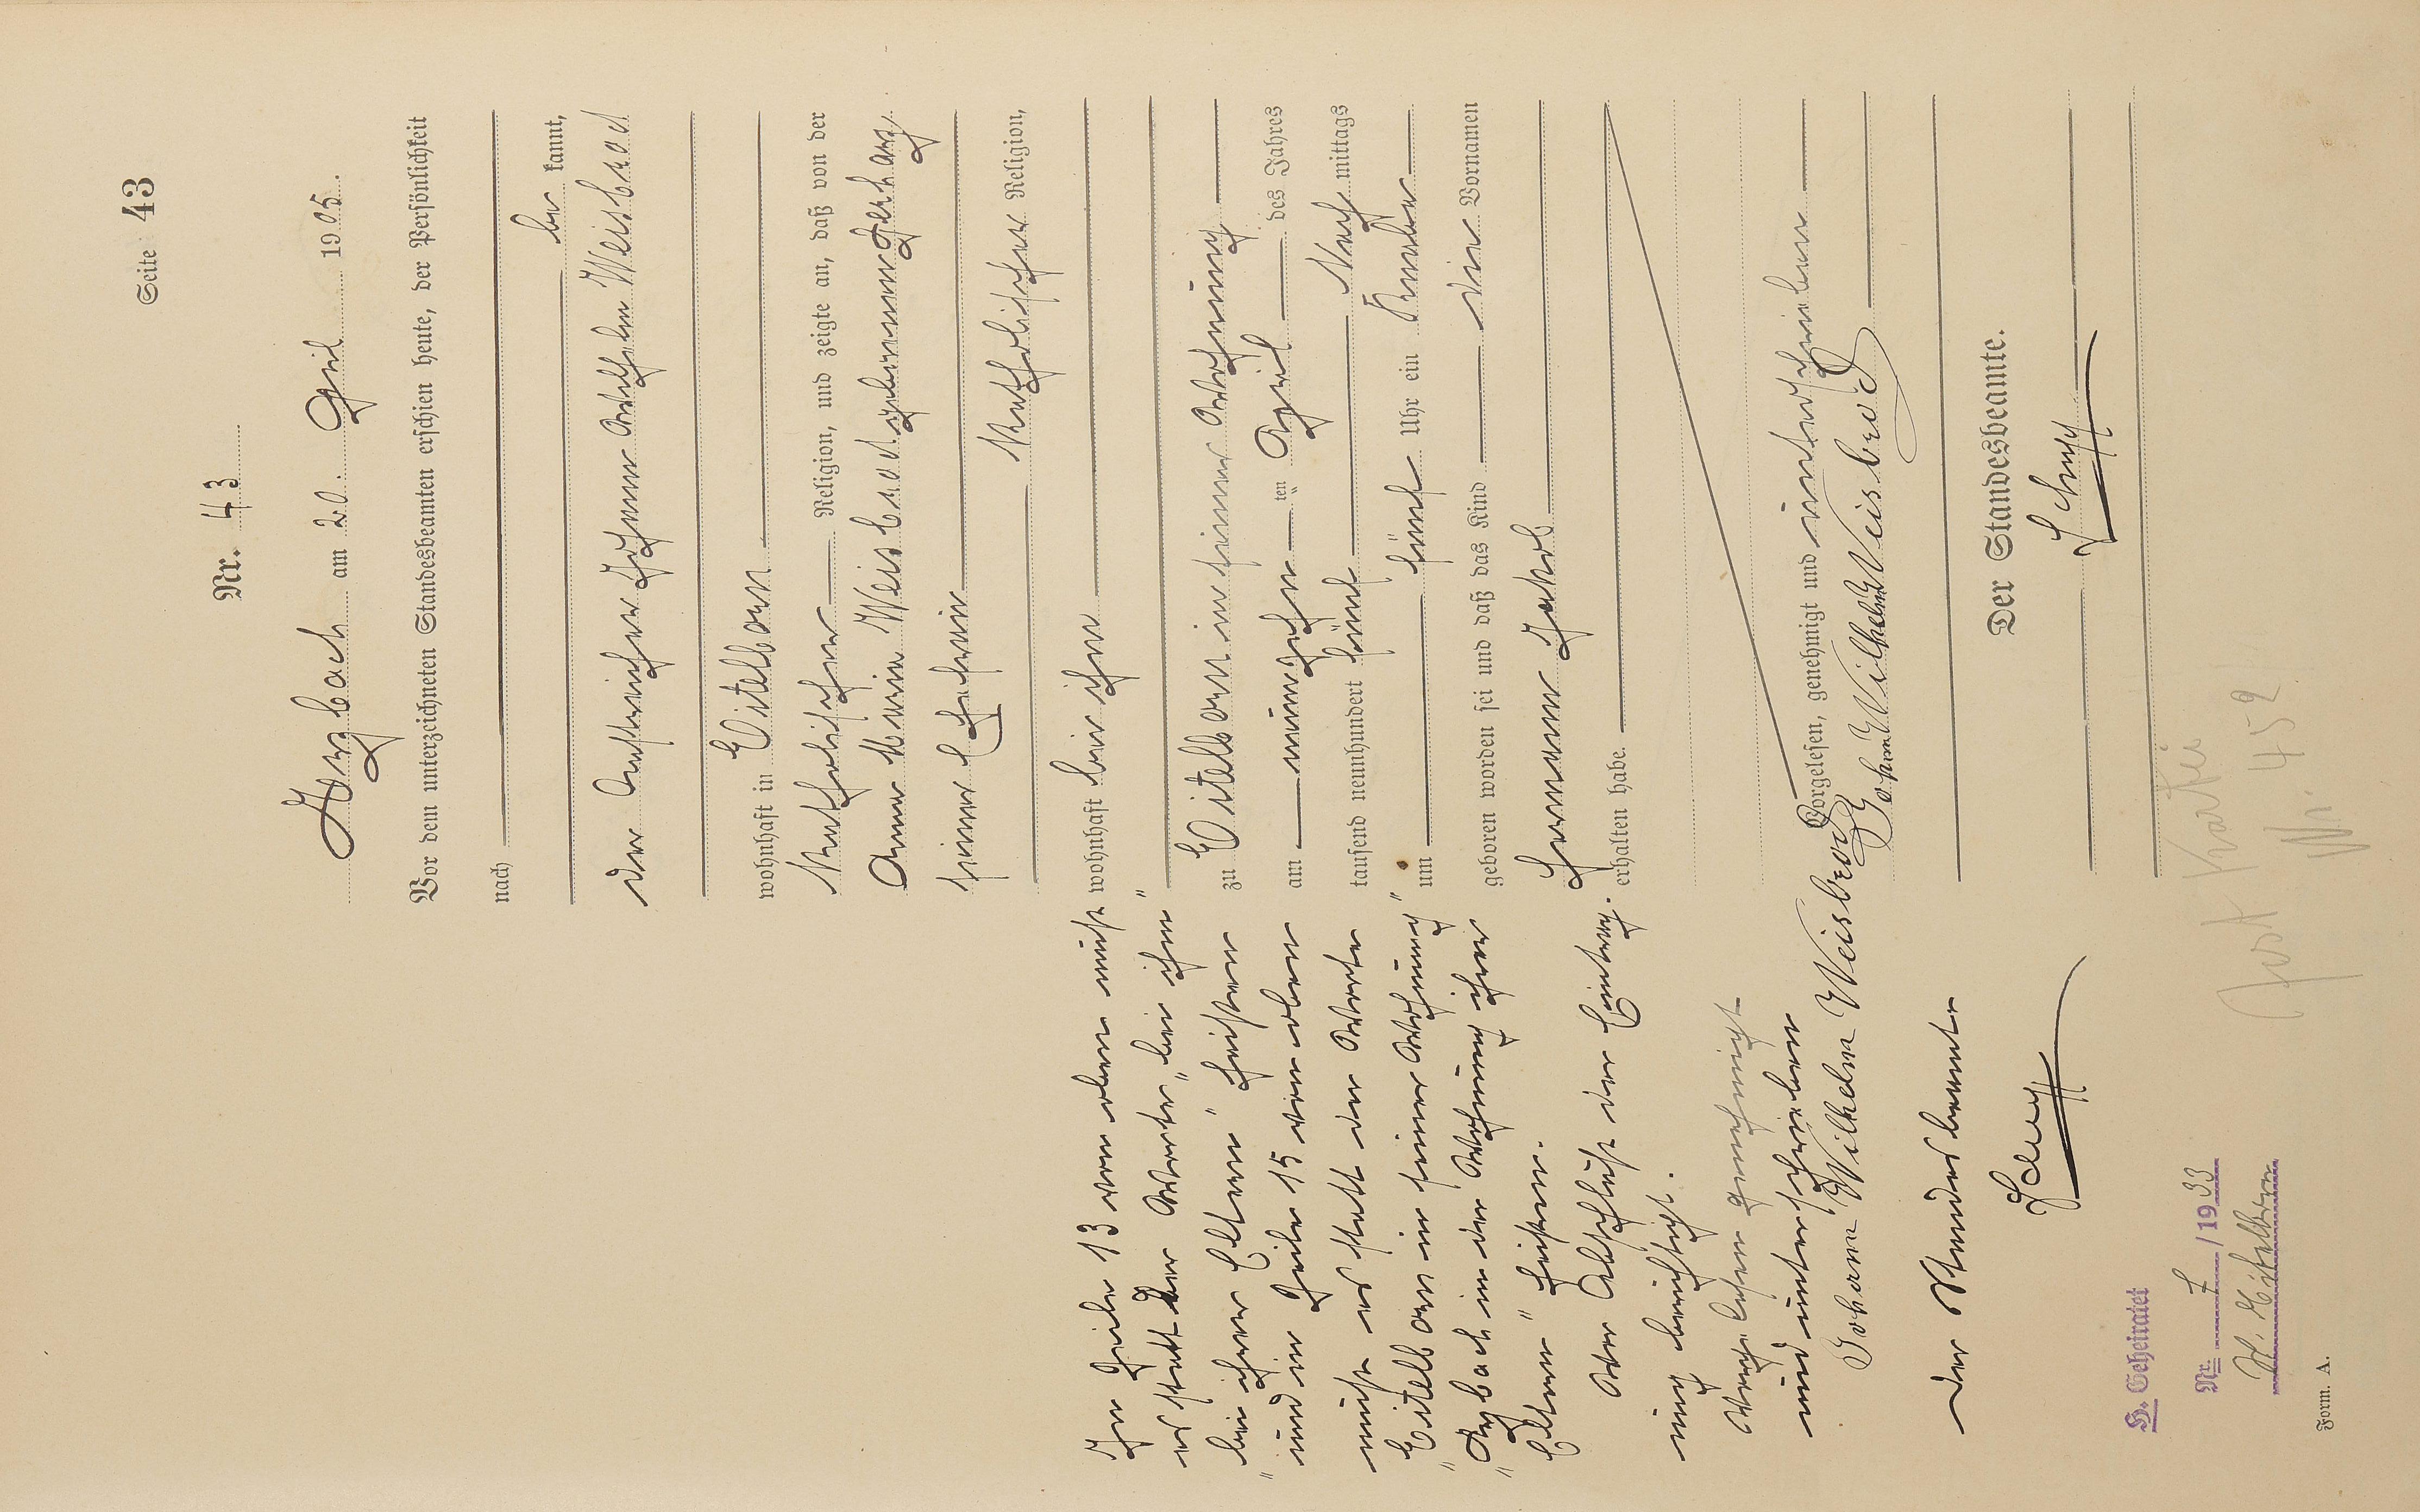 Seite 43
Nr. 43
Arzbach am 20. April 1905.
Vor dem unterzeichneten Standesbeamten erschien heute, der Persönlichkeit
nach
be kannt,
der Anstreicher Johann Wilhelm Weisbrod
wohnhaft in Eitelborn
katholischer Religion, und zeigte an, daß von der
Anna Maria Weisbrod geborenen Gerharz,
seiner Ehefrau
katholischer Religion,
wohnhaft bei ihm
zu Eitelborn in seiner Wohnung
am neunzehn ten April des Jahres
tausend neunhundert fünf Nach mittags
um fünf Uhr ein Knabe
geboren worden sei und daß das Kind die Vornamen
Hermann Jakob
erhalten habe.
Vorgelesen, genehmigt und unterschrieben
Johann Wilhelm Weisbrod
Der Standesbeamte.
In Zeile 13 von oben muß
es statt der Worte „bei ihm"
„bei ihren Eltern" heißen
und in Zeile 15 von oben
muß es statt der Worte
„Eitelborn in seiner Wohnung"
„Arzbach in der Wohnung ihrer
Eltern" heißen.
Vor Abschluß der Eintrag-
ung berichtigt.
Vorgelesen genehmigt
und unterschrieben
Johann Wilhelm Weisbrod
Der Standesbeamte
H. Geheiratet
Nr. 7 /1933
St. A. Eitelborn
Kartei
Nr. 452
Form. A.